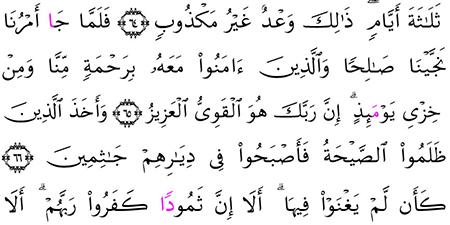 ثَلَٰثَةَ أَيَّامٍ ۖ ذَٰلِكَ وَعْدٌ غَيْرُ مَكْذُوبٍ ٦٤ فَلَمَّا جَا أَمْرُنَا
نَجَّيْنَا صَٰلِحًا وَٱلَّذِينَ ءَامَنُوا۟ مَعَهُۥ بِرَحْمَةٍ مِّنَّا وَمِنْ
خِزْىِ يَوْمَئِذٍ ۗ إِنَّ رَبَّكَ هُوَ ٱلْقَوِىُّ ٱلْعَزِيزُ ٦٥ وَأَخَذَ ٱلَّذِينَ
ظَلَمُوا۟ ٱلصَّيْحَةُ فَأَصْبَحُوا۟ فِى دِيَٰرِهِمْ جَٰثِمِينَ ٦٦
كَأَن لَّمْ يَغْنَوْا۟ فِيهَا ۗ أَلَا إِنَّ ثَمُودًا كَفَرُوا۟ رَبَّهُمْ ۗ أَلَا